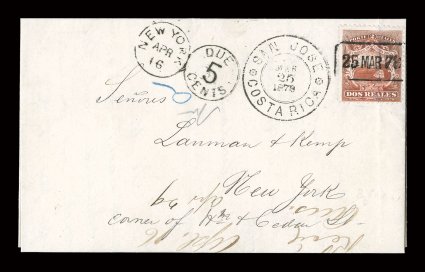 NEW YORK
APR
16
DUE
5
CENTS
SAN JOSE
MAR
25
1878
COSTA RICA
25 MAR 78
DOS REALES
Señores
Lanman & Kemp
New York
corner of Wm & Cedar